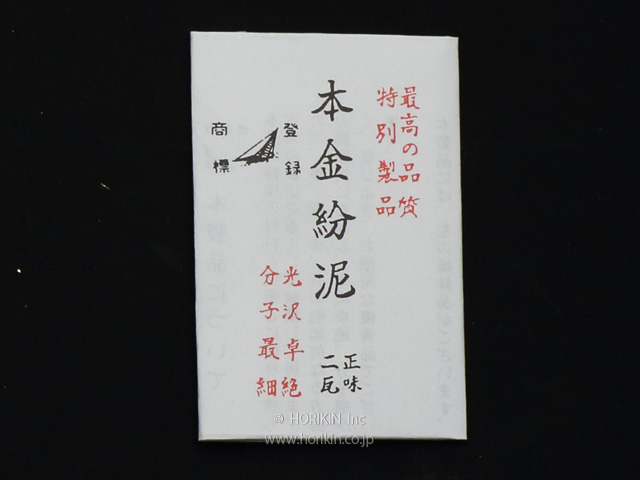 最高の品質
特別製品
本金紛泥
登録
商標
正味
二瓦
光沢卓絶
分子最細
© HORIKIN Inc
www.horikin.co.jp